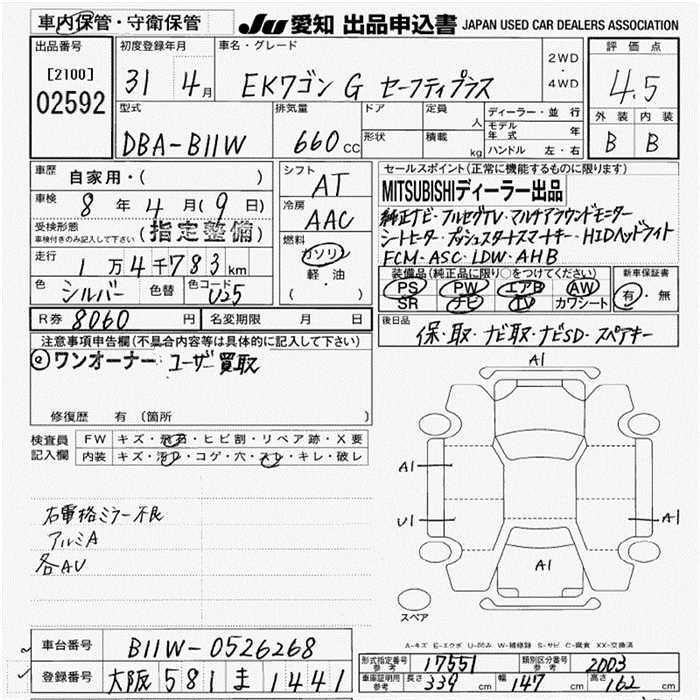 車内保管・守衛保管
JU 愛知 出品申込書 JAPAN USED CAR DEALERS ASSOCIATION
出品番号
[2100]
02592
初度登録年月
31 4月
車名・グレード
EKワゴン G セーフティプラス
2WD
・
4WD
評価点
4.5
外装 内装
B B
型式
DBA-B11W
排気量
660 CC
ドア
形状
定員 人
積載 kg
ディーラー・並行
モデル年式 年
ハンドル 左・右
車歴
自家用・( )
車検 8年 4月(9日)
受検形態
車検付きのみ記入して下さい
(指定整備)
走行
1万4千783km
色 シルバー 色替 色コード U25
シフト
AT
冷房
AAC
燃料
ガソリン
軽・油
( )
セールスポイント(正常に機能するものに限ります)
MITSUBISHIディーラー出品
純正ナビ・フルセグTV・マルチアラウンドモニター
シートヒーター・プッシュスタートスマートキー・HIDヘッドライト
FCM・ASC・LDW・AHB
装備品(純正品に限り○をつけてください)
PS PW エアB AW
SR ナビ TV カワシート
新車保証書
有・無
R券 8060円 名変期限 月 日
後日品
保・取・ナビ取・ナビSD・スペアキー
注意事項申告欄(不具合内容等は具体的に記入して下さい)
ワンオーナー ユーザー買取
修復歴 有(箇所 )
検査員
記入欄
FW キズ・飛石・ヒビ割・リペア跡・X要
内装 キズ・汚レ・コゲ・穴・スレ・キレ・破レ
右電格ミラー不良
アルミA
各AU
A1
A1
U1
A1
A1
スペア
A-キズ E-エクボ U-凹み W-補修跡 S-サビ C-腐食 XX-交換済
車台番号 B11W-0526268
登録番号 大阪 581 ま 1441
形式指定番号 参考 17551 類別区分番号 参考 2003
車庫証明用 参考 長さ 339 cm 幅 147 cm 高さ 162 cm